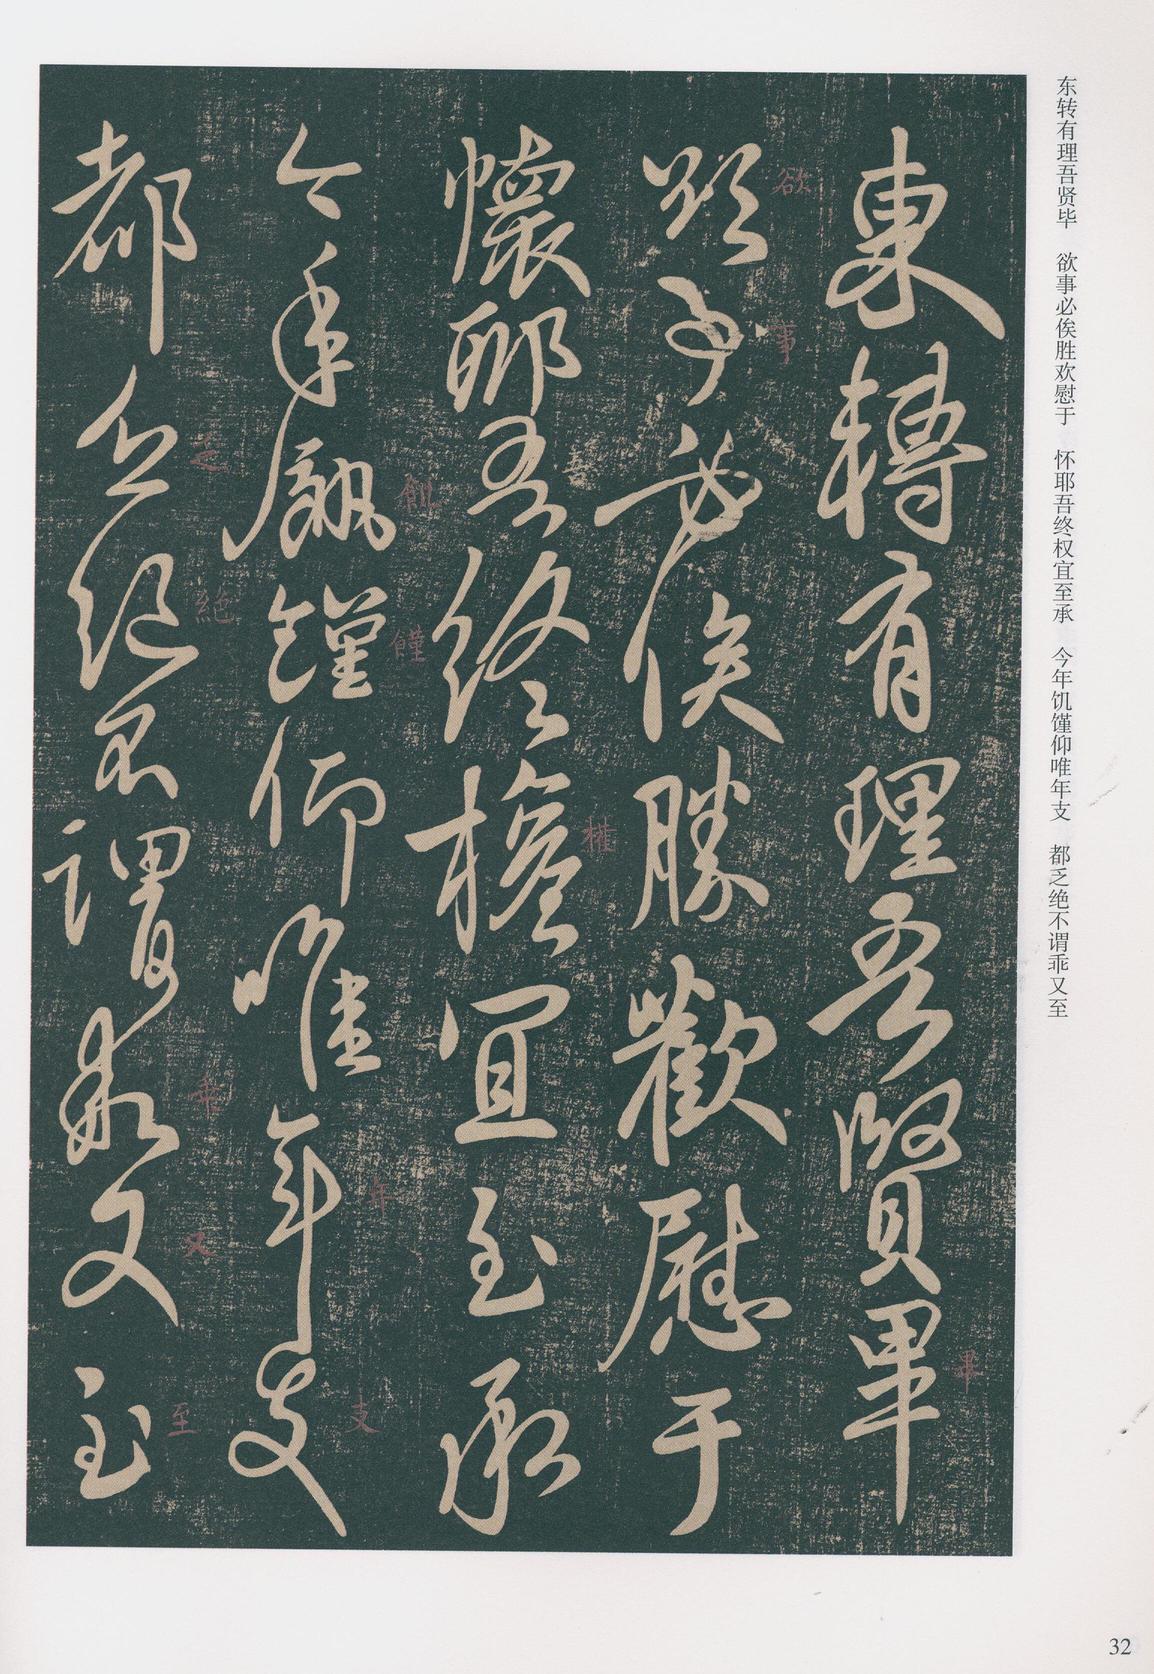 东转有理吾贤毕　欲事必俟胜欢慰于　怀耶吾终权宜至承　今年饥馑仰唯年支　都乏绝不谓乖又至
東轉有理吾賢畢
畢
欲事必俟勝歡慰于
欲
事
懷耶吾終權宜至承
權
今年飢饉仰唯年支
飢
饉
年
支
都乏絕不謂乖又至
乏
絕
乖
又
至
32